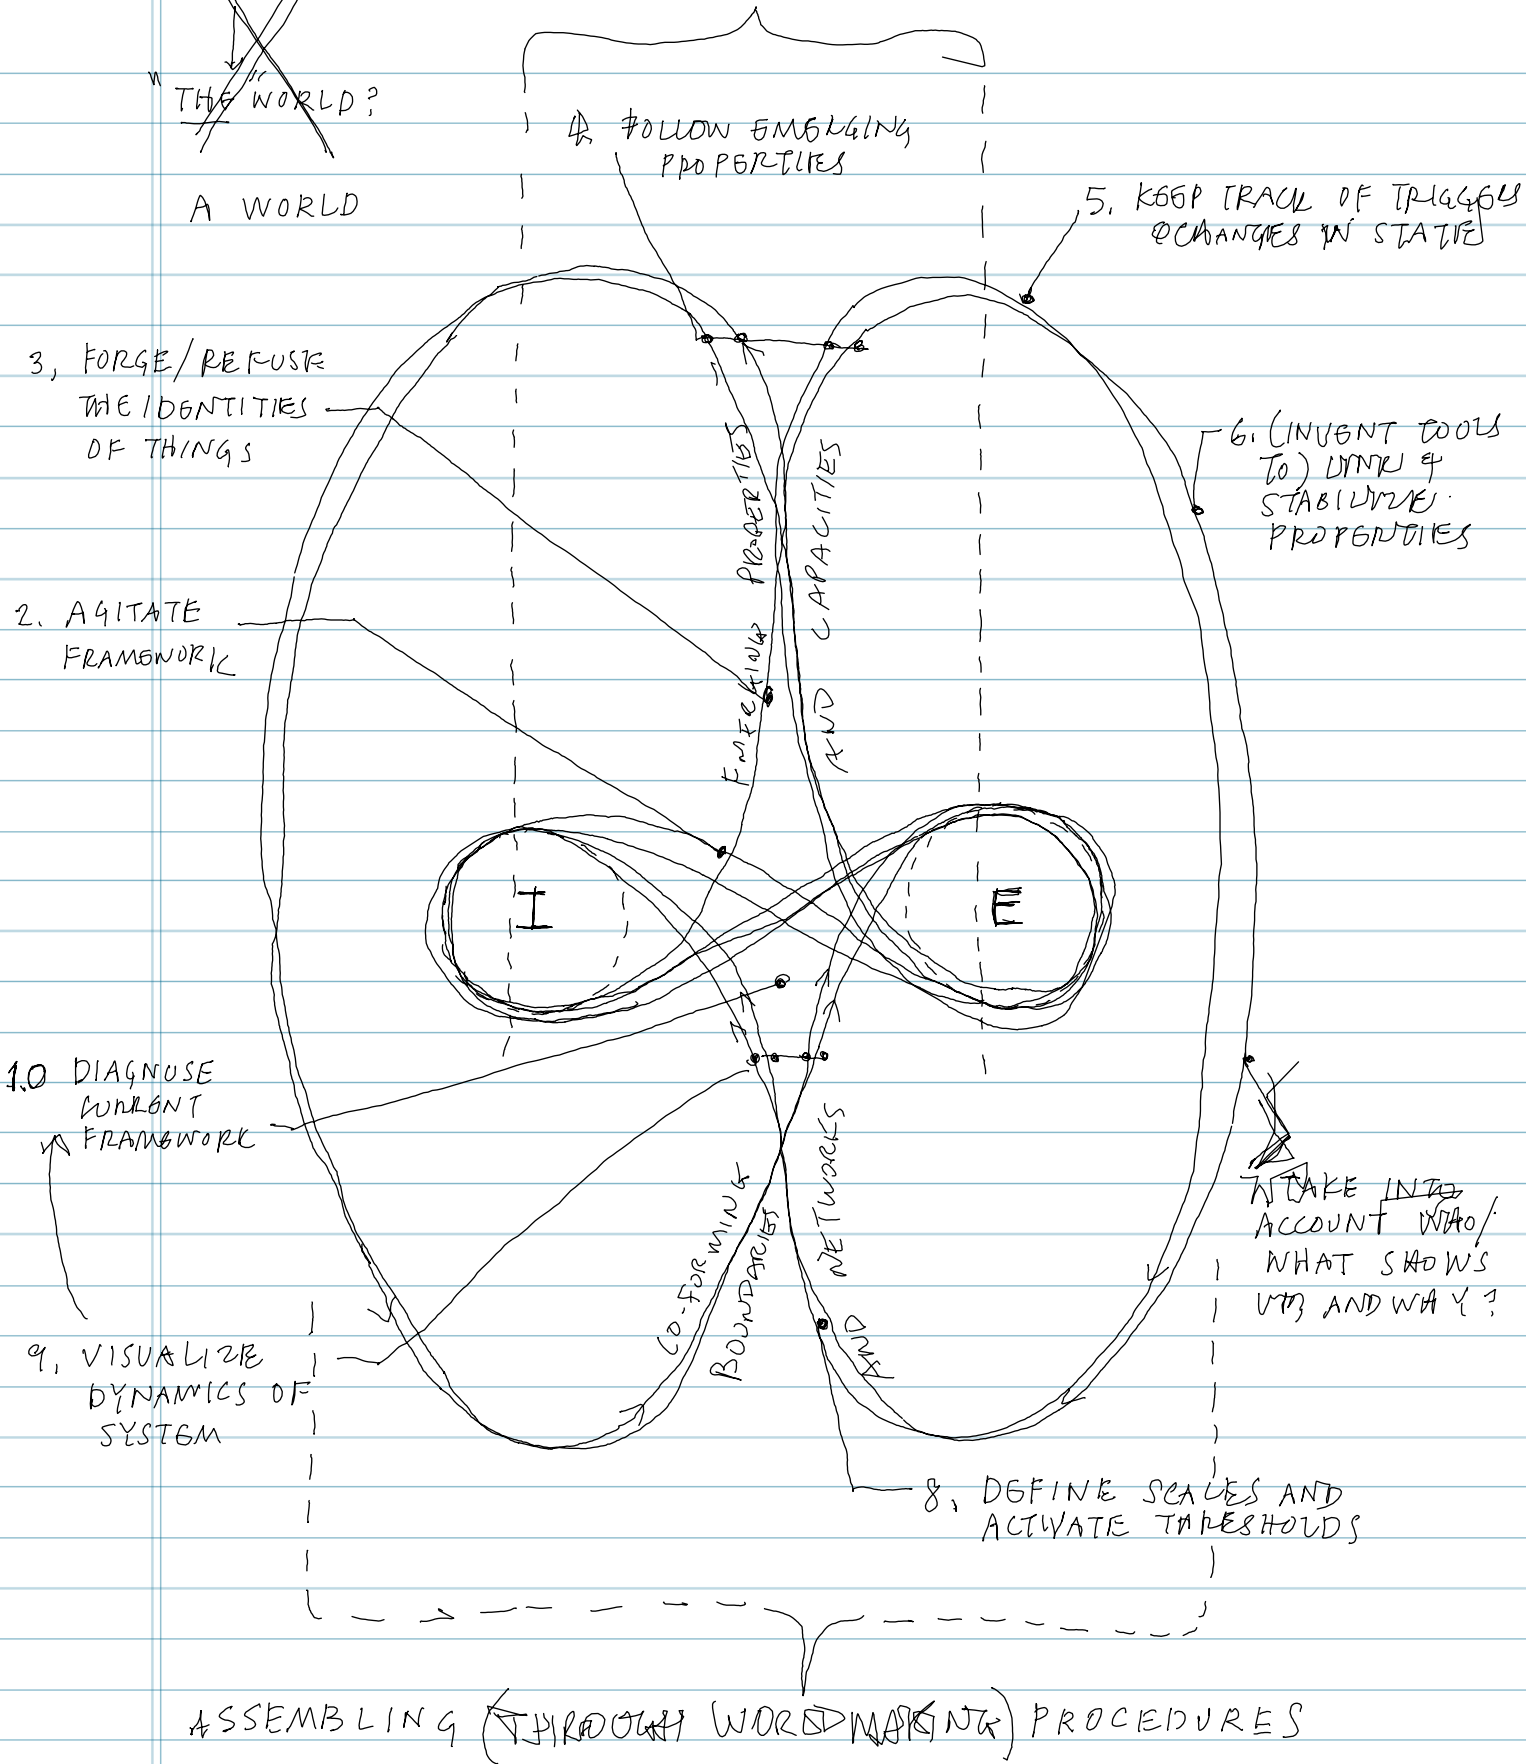 "THE" WORLD?
A WORLD
4. FOLLOW EMERGING
PROPERTIES
5. KEEP TRACK OF TRIGGERS
& CHANGES IN STATE
3, FORGE/REFUSE
THE IDENTITIES
OF THINGS
6. (INVENT TOOLS
TO) LINK &
STABILIZE
PROPERTIES
2. AGITATE
FRAMEWORK
EMERGING PROPERTIES
AND CAPACITIES
I
E
1.0 DIAGNOSE
CURRENT
FRAMEWORK
7. TAKE INTO
ACCOUNT WHO/
WHAT SHOWS
UP AND WHY?
CO-FORMING
BOUNDARIES
AND NETWORKS
9, VISUALIZE
DYNAMICS OF
SYSTEM
8, DEFINE SCALES AND
ACTIVATE THRESHOLDS
ASSEMBLING (THROUGH WORLDMAKING) PROCEDURES